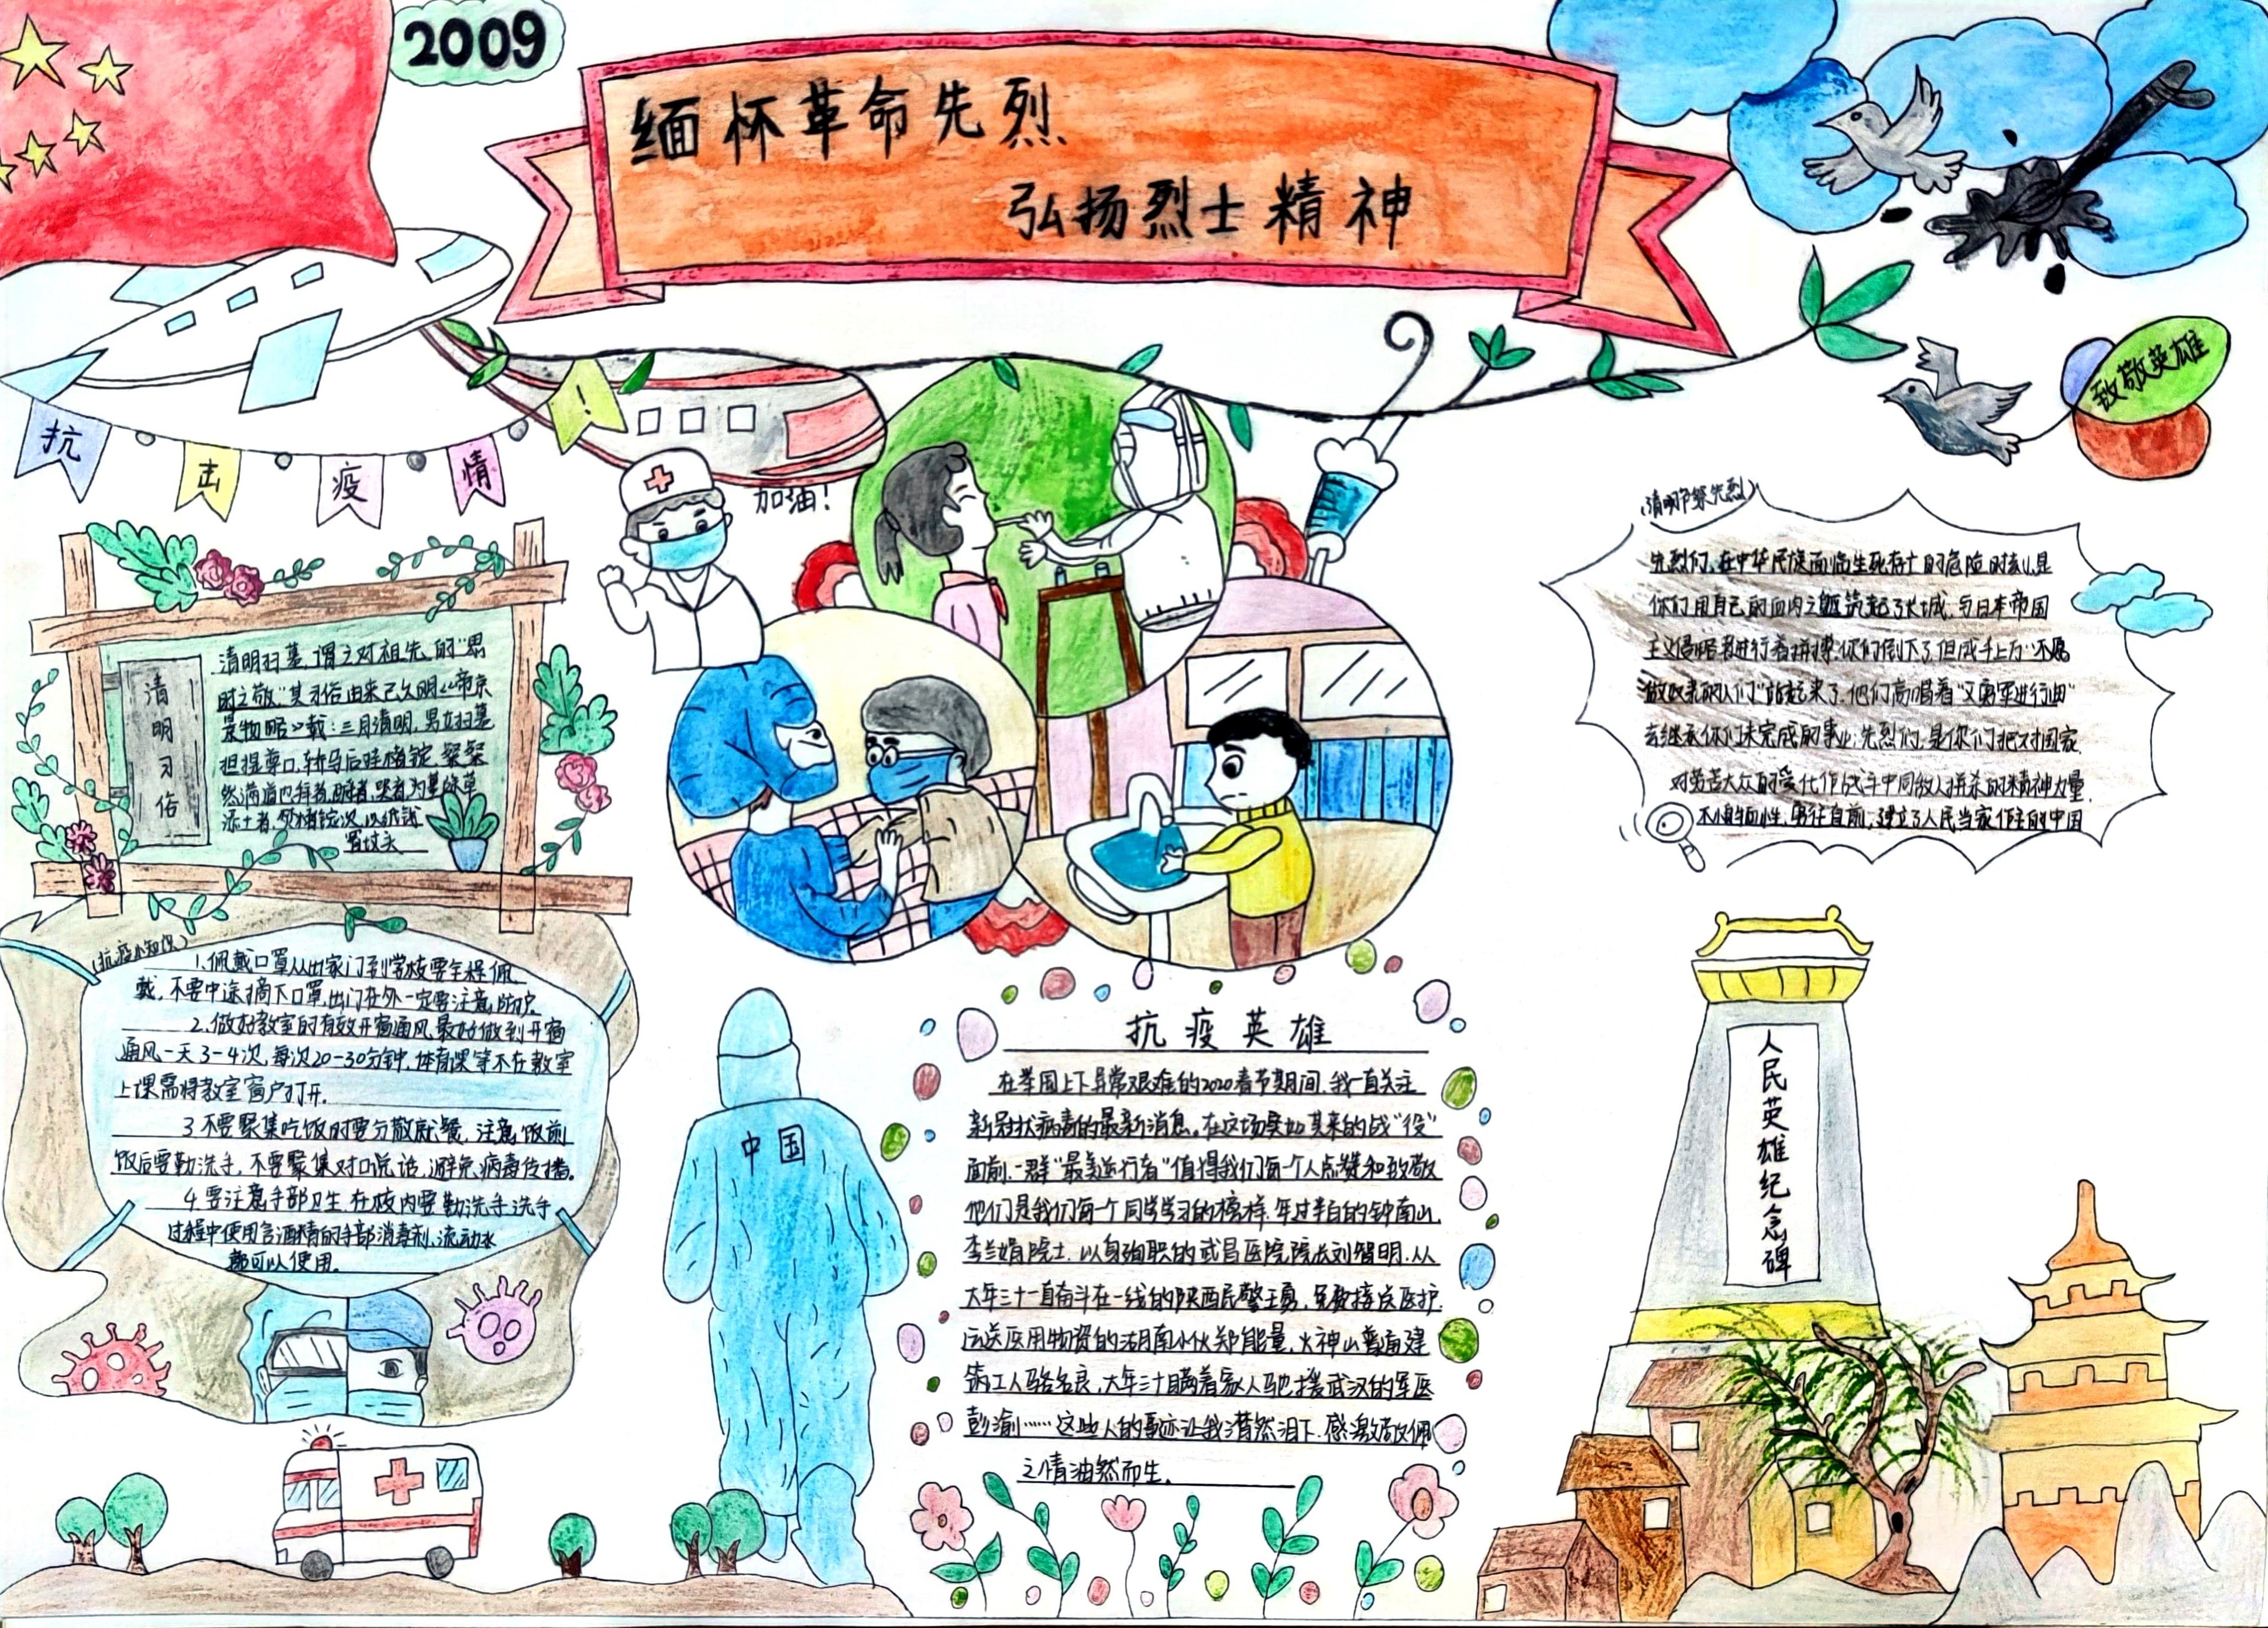 2009
缅怀革命先烈
弘扬烈士精神
致敬英雄
抗击疫情!
加油!
清明习俗
清明扫墓,谓之对祖先的“思
时之敬”其习俗由来已久明《帝京
景物略》载:三月清明,男女扫墓
担提尊口,轿马后挂楮锭,粲粲
然满道也拜者,酹者,哭者,为墓除草
添土者,焚楮锭次,以纸钱
置坟头
(清明节祭先烈)
先烈们,在中华民族面临生死存亡的危险时刻,是
你们用自己的血肉之躯筑起了长城,与日本帝国
主义侵略者进行着拼搏,你们倒下了,但成千上万“不愿
做奴隶的人们”站起来了,他们高唱着“义勇军进行曲”
去继承你们未完成的事业;先烈们,是你们把对国家,
对劳苦大众的爱化作战斗中同敌人拼杀的精神力量,
不惧牺牲,勇往直前,建立了人民当家作主的中国
(抗疫小知识)
1.佩戴口罩从出家门到学校要全程佩
戴,不要中途摘下口罩,出门在外一定要注意防护。
2.做好教室的有效开窗通风,最好做到开窗
通风一天3-4次,每次20-30分钟,体育课等不在教室
上课需将教室窗户打开.
3.不要聚集吃饭时要分散就餐,注意饭前
饭后要勤洗手,不要聚集对口说话,避免病毒传播。
4.要注意手部卫生,在校内要勤洗手洗手
过程中使用含酒精的手部消毒剂、流动水
都可以使用.
中国
抗疫英雄
在举国上下异常艰难的2020春节期间,我一直关注
新冠状病毒的最新消息。在这场突如其来的战“役”
面前,一群“最美逆行者”值得我们每一个人点赞和致敬
他们是我们每一个同学学习的榜样.年过半百的钟南山,
李兰娟院士.以身殉职的武昌医院院长刘智明.从
大年三十一直奋斗在一线的陕西民警王勇,免费接送医护,
运送医用物资的湖南小伙郑能量,火神山普通建
筑工人骆名良,大年三十瞒着家人驰援武汉的军医
彭渝……这些人的事迹让我潸然泪下.感激敬佩
之情油然而生.
人民英雄纪念碑